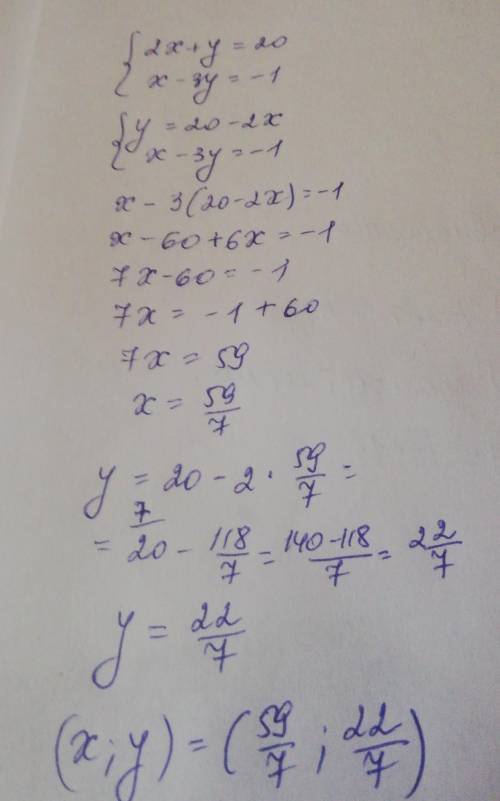 {2x+y=20
x-3y=-1
{y=20-2x
x-3y=-1
x-3(20-2x)=-1
x-60+6x=-1
7x-60=-1
7x=-1+60
7x=59
x=59/7
y=20-2·59/7=
7/
=20-118/7=140-118/7=22/7
y=22/7
(x;y)=(59/7;22/7)